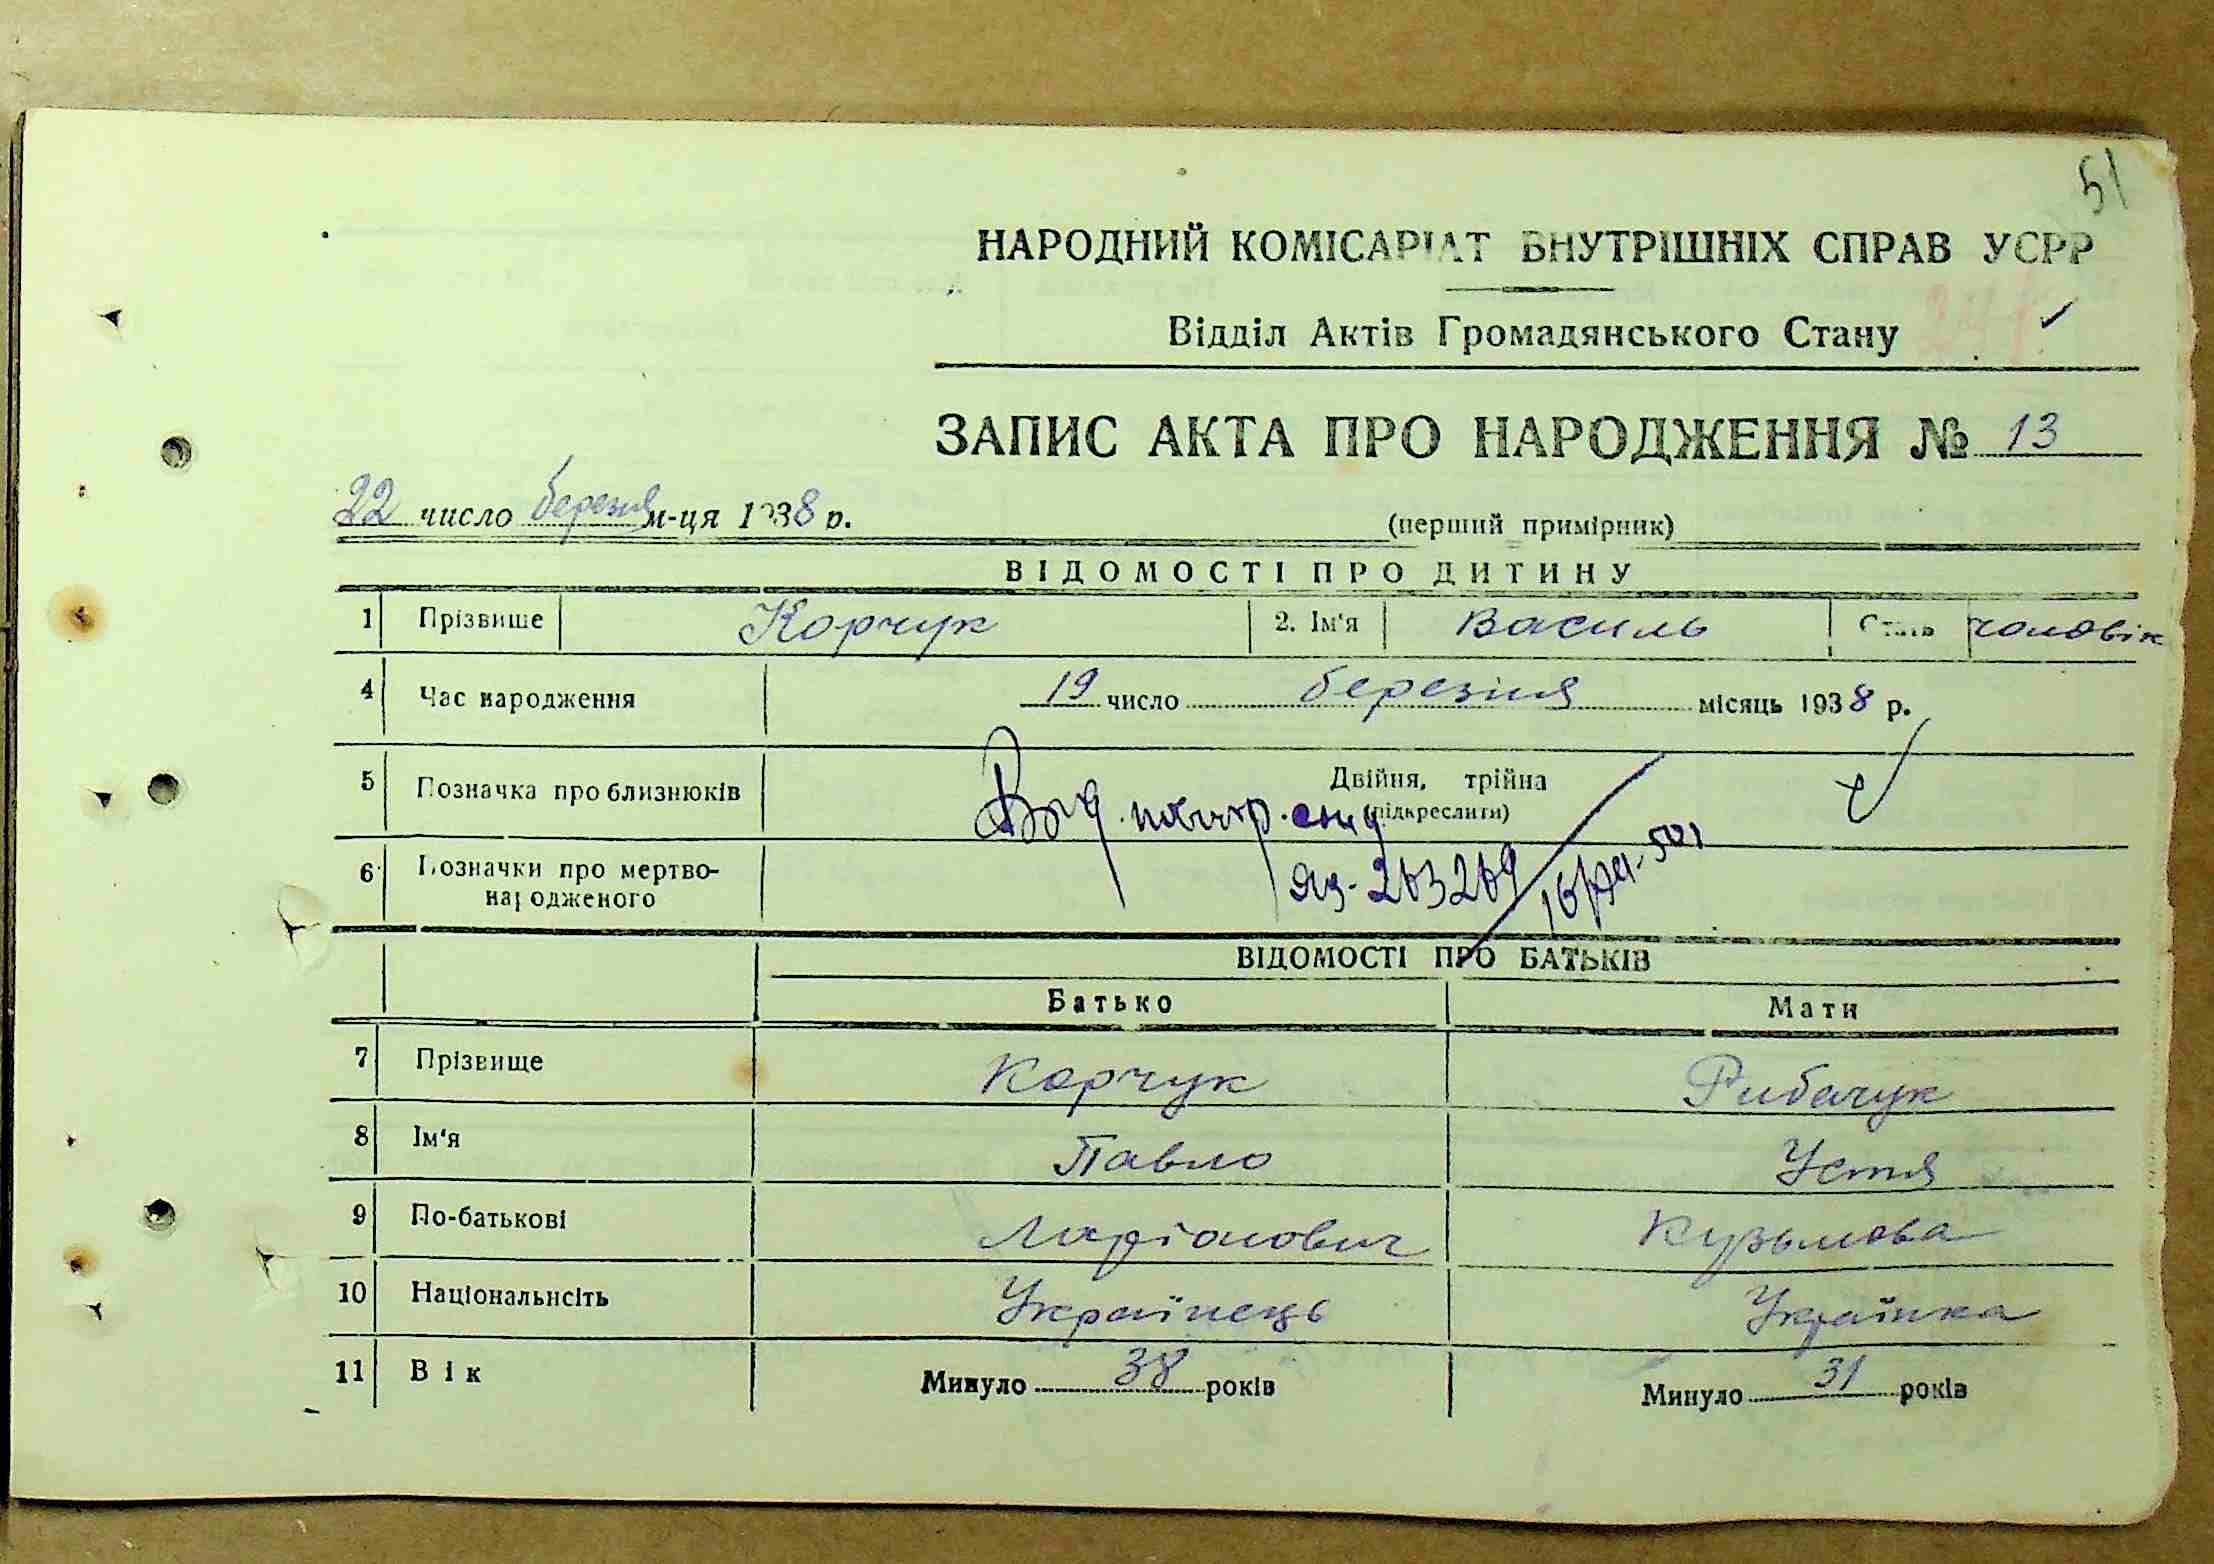 51
НАРОДНИЙ КОМІСАРІАТ ВНУТРІШНІХ СПРАВ УСРР
Відділ Актів Громадянського Стану
ЗАПИС АКТА ПРО НАРОДЖЕННЯ № 13
22 число березня м-ця 1938 р. (перший примірник)
ВІДОМОСТІ ПРО ДИТИНУ
1 Прізвище Корчук 2. Ім'я Василь Стать чоловік
4 Час народження 19 число березіля місяць 1938 р.
5 Позначка про близнюків Двійня, трійна
(підкреслити)
6 Позначки про мертво-
народженого
263269
ВІДОМОСТІ ПРО БАТЬКІВ
Батько Мати
7 Прізвище Корчук Рибачук
8 Ім'я Павло Устя
9 По-батькові Ларіонович Кузьмова
10 Національнсіть Українець Українка
11 Вік Минуло 38 років Минуло 31 років